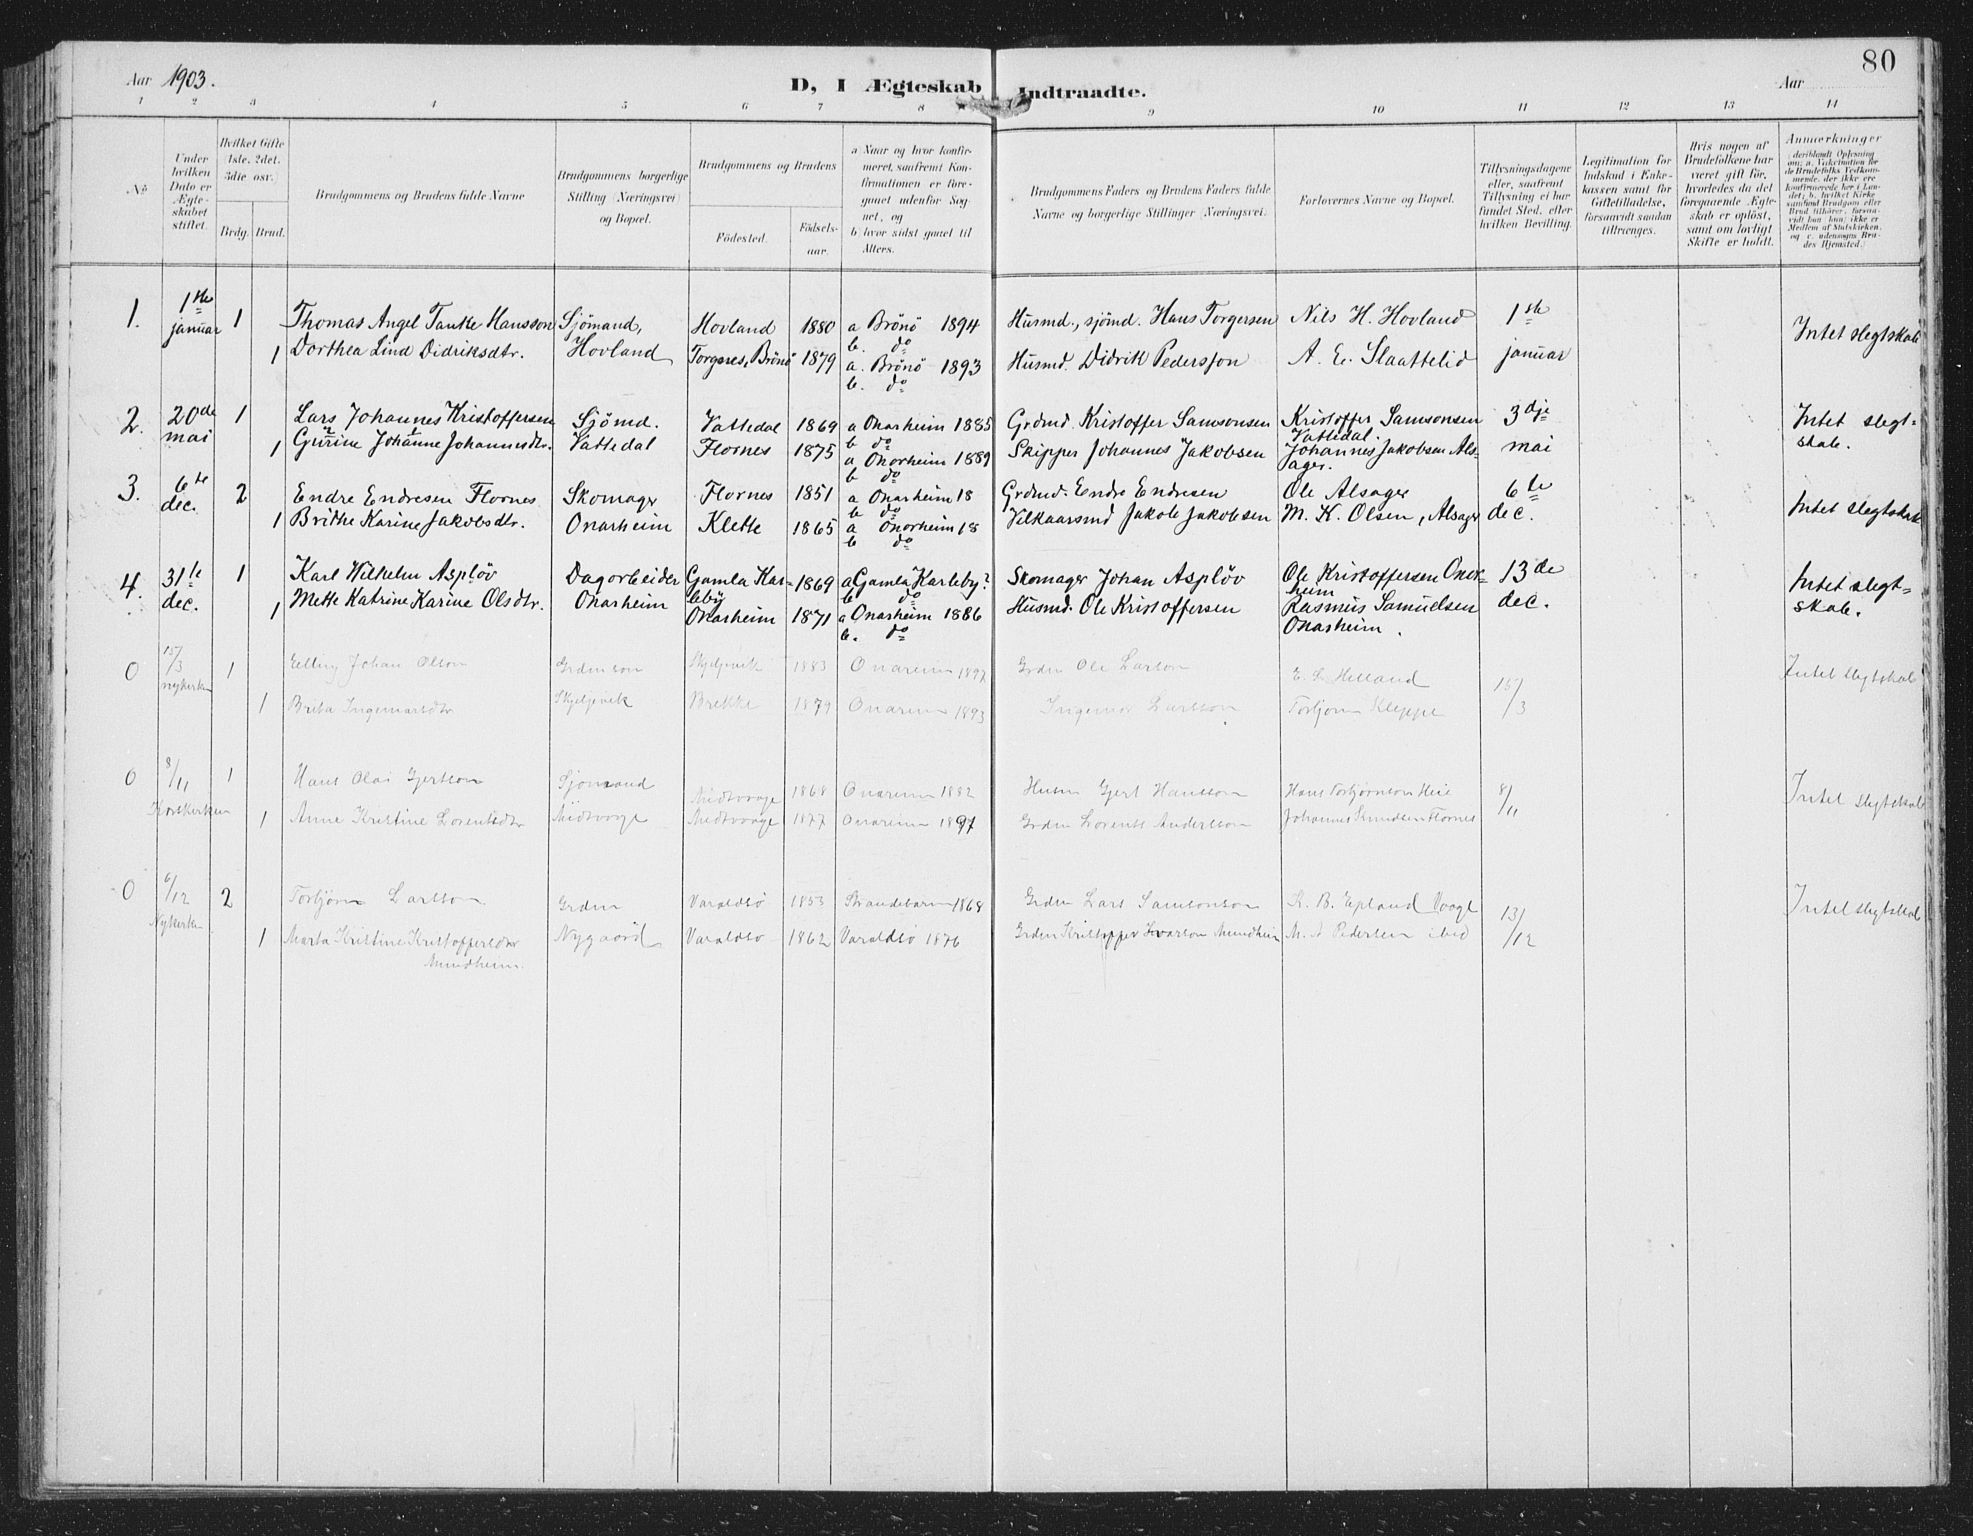 80
Aar 1903.
D, I Ægteskab Indtraadte.
Aar
1 2 3 4 5 6 7 8 9 10 11 12 13 14
No
Under hvilken Dato er Ægteskabet stiftet.
Hvilket Gifte 1ste, 2det, 3die osv.
Brdg. Brud.
Brudgommens og Brudens fulde Navne
Brudgommens borgerlige Stilling (Næringsvei) og Bopæl.
Brudgommens og Brudens
Fødested.
Fødsels-aar.
a Naar og hvor konfirmeret, saafremt Konfirmationen er foregaaet udenfor Sognet, og
b hvor sidst gaaet til Alters.
Brudgommens Faders og Brudens Faders fulde Navne og borgerlige Stillinger (Næringsvei).
Forlovernes Navne og Bopæl.
Tillysningsdagene eller, saafremt Tillysning ei har fundet Sted, efter hvilken Bevilling.
Legitimation for Indskud i Enkekassen samt for Giftetilladelse, forsaavidt saadan tiltrænges.
Hvis nogen af Brudefolkene har været gift før, hvorledes da det foregaaende Ægteskab er opløst, samt om lovligt Skifte er holdt.
Anmærkninger
1. 1ste januar 1 Thomas Angel Tanke Hansson Sjömand, Hovland 1880 a Brönö 1894 Husmd., sjömd. Hans Torgersen Nils H. Hovland 1ste Intet slegtskab
b. do
1 Dorthea Lind Didriksdtr. Hovland Torgnes, Brönö 1879 a. Brönö 1893 Husmd. Didrik Pedersson A. E. Slaattelid januar
b. do
2. 20de mai 1 Lars Johannes Kristoffersen Sjömd. Vattedal 1869 a Onarheim 1885 Grdmd. Kristoffer Samsonsen Kristoffer Samsonsen Vattedal. 3dje Intet slegt-
b do
1 Gurine Johanne Johannesdtr. Vattedal Flornes 1875 a Onarheim 1889 Skipper Johannes Jakobsen Johannes Jakobsen Alsager. mai skab.
b do
3. 6te dec. 2 Endre Endresen Flornes Skomager Flornes 1851 a Onarheim 18 Grdmd. Endre Endresen Ole Alsager 6te Intet slegtskab
b do
1 Brithe Karine Jakobsdtr. Onarheim Klette 1865 a Onarheim 18 Vilkaarsmd Jakob Jakobsen M. K. Olsen, Alsager dec.
b do
4. 31te dec. 1 Karl Wilhelm Asplöv Dagarbeider Gamla Karleby 1869 a Gamla Karleby? Skomager Johan Asplöv Ole Kristoffersen Onarheim 13de Intet slegt-
b do
1 Mette Katrine Karine Olsdtr. Onarheim Onarheim 1871 a Onarheim 1886 Husmd. Ole Kristoffersen Rasmus Samuelsen Onarheim. dec. skab.
b. do
0 15/3 Nykerken 1 Elling Johan Olson Grdmson Skjeljevik 1883 Onareim 1897 Grdm Ole Larson E. L. Helland 15/3 Intet slegtskab
1 Brita Ingemarsdtr Skjeljevik Brekke 1879 Onareim 1893 Ingemar Larsson Torbjørn Kleppe
0 8/11 Korskerken 1 Hans Olai Gjertson Sjømand Midtvaage 1868 Onareim 1882 Husm Gjert Hansson Hans Torbjørnson Heie 8/11 Intet slegtskab
1 Anne Kristine Lorentsdtr Midtvaage Midtvaage 1877 Onareim 1897 Grdm Lorents Andersson Johannes Knudsen Flornes
0 6/12 Nykerken 2 Torbjørn Larsson Grdm Varaldsö 1853 Strandebarm 1868 Grdm Lars Samsonson K. B. Epland Vaage 13/12 Intet slegtskab
1 Marta Kristine Kristoffersdtr Mundheim. Nygaard Varaldsö 1862 Varaldsö 1876 Grdm Kristoffer Mundheim M. A Pedersen ibid